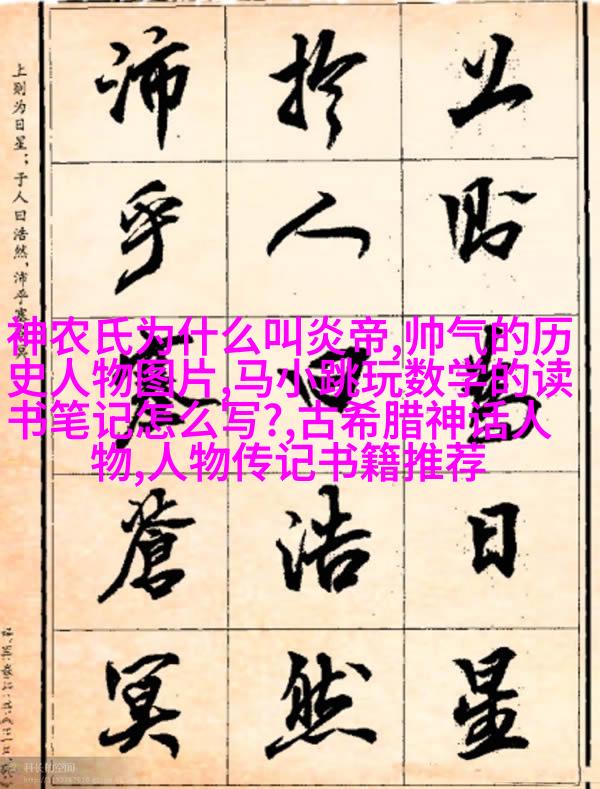 上則為日星
於人曰浩然
沛乎塞蒼冥
上则为日星；于人曰浩然，沛乎塞
神农氏为什么叫炎帝,帅气的历
史人物图片,马小跳玩数学的读
书笔记怎么写?,古希腊神话人
物,人物传记书籍推荐
科长的空间